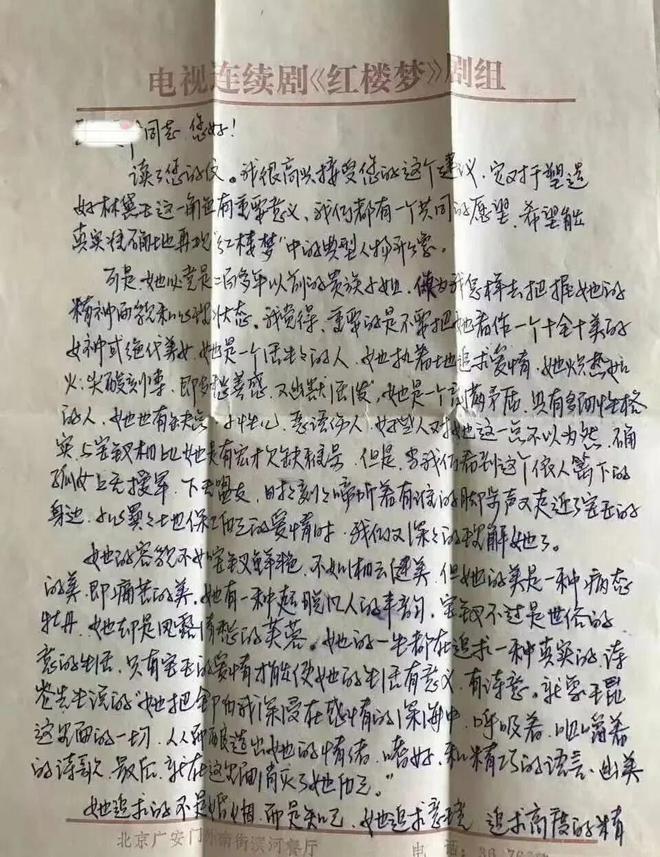 电视连续剧《红楼梦》剧组
同志 您好！
读了您的信。我很高兴接受您的这个建议，它对于塑造
好林黛玉这一角色有重要意义，我们都有一个共同的愿望，希望能
真实准确地再现"红楼梦"中的典型人物形象。
可是，她必竟是二百多年以前的贵族小姐，做为我怎样去把握她的
精神面貌和心理状态。我觉得，重要的是不要把她看作一个十全十美的
女神或绝代美女，她是一个活生生的人，她执着地追求爱情，她炽热如
火；尖酸刻薄，即多愁善感，又幽默活泼，她是一个充满矛盾，具有多面性格
的人，她也有缺点，小性儿，恶语伤人，好些人对她这一点不以为然，确
实与宝钗相比她没有宏才欠缺
但是，当我们看到这个依人篱下的
孤女上无援军，下无盟友，时时刻刻啼听着有谁的脚步声又走近了宝玉的
身边，小心翼翼地保卫自己的爱情时，我们又深深的理解她了。
她的容貌不如宝钗鲜艳，不如湘云健美，但她的美是一种病态
的美，即痛苦的美。她有一种超脱凡人的丰韵，宝钗不过是世俗的
牡丹，她却是风露清愁的芙蓉。她的一生都在追求一种真实的，诗
意的生活，只有宝玉的爱情才能使她的生活有意义，有诗意。就象王昆
仑先生说的"她把全部自我深浸在感情的深海中，呼吸着，咀嚼着
这里面的一切，从而酿造出她的情绪，嗜好，和精巧的语言，幽美
的诗歌，最后，就在这里面消灭了她自己。"
她追求的不是婚姻，而是知己，她追求意境，追求高度的精
北京广安门外南街滨河餐厅
电 话：